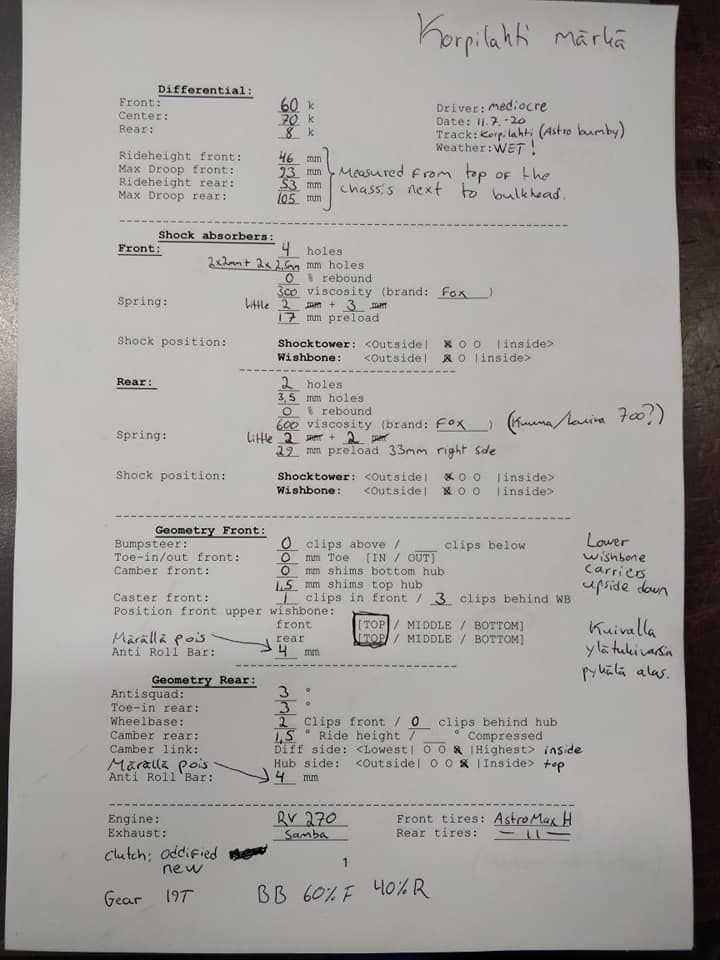 Korpilahti märkä
Differential:
Front: 60 k
Center: 70 k
Rear: 8 k
Driver: mediocre
Date: 11.7.-20
Track: Korpilahti (Astro bumby)
Weather: WET!
Rideheight front: 46 mm
Max Droop front: 93 mm
Rideheight rear: 53 mm
Max Droop rear: 105 mm
Measured from top of the
chassis next to bulkhead.
Shock absorbers:
Front: 4 holes
2x2mm + 2x2,5m mm holes
0 % rebound
300 viscosity (brand: Fox )
Spring: little 2 mm + 3 mm
17 mm preload
Shock position: Shocktower: <Outside| X O O |inside>
Wishbone: <Outside| X O |inside>
Rear: 2 holes
3,5 mm holes
0 % rebound
600 viscosity (brand: Fox ) (Kuuma/kuiva 700?)
Spring: little 2 mm + 2 mm
29 mm preload 33mm right side
Shock position: Shocktower: <Outside| X O O |inside>
Wishbone: <Outside| X O O |inside>
Geometry Front:
Bumpsteer: 0 clips above / ___ clips below
Toe-in/out front: 0 mm Toe [IN / OUT]
Camber front: 0 mm shims bottom hub
1,5 mm shims top hub
Caster front: 1 clips in front / 3 clips behind WB
Position front upper wishbone:
front [TOP / MIDDLE / BOTTOM]
Märällä pois rear [TOP / MIDDLE / BOTTOM]
Anti Roll Bar: 4 mm
Lower
wishbone
carriers
upside down
Kuivalla
ylätukivarsin
pykälä alas.
Geometry Rear:
Antisquad: 3 °
Toe-in rear: 3 °
Wheelbase: 2 Clips front / 0 clips behind hub
Camber rear: 1,5 ° Ride height / ___ ° Compressed
Camber link: Diff side: <Lowest| O O X |Highest> inside
Märällä pois Hub side: <Outside| O O X |Inside> top
Anti Roll Bar: 4 mm
Engine: RV 270
Exhaust: Samba
Front tires: AstroMax H
Rear tires: — 11 —
Clutch: Oddified
new
1
Gear 19T BB 60% F 40% R